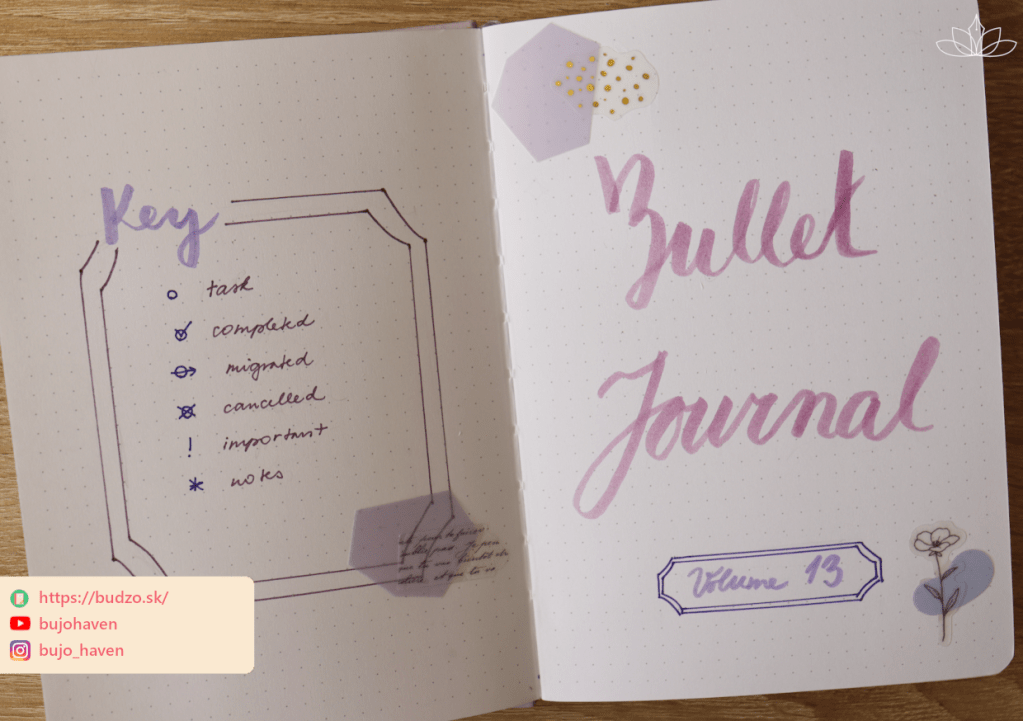 Key
task
completed
migrated
cancelled
! important
* notes
Bullet
Journal
Volume 13
https://budzo.sk/
bujohaven
bujo_haven